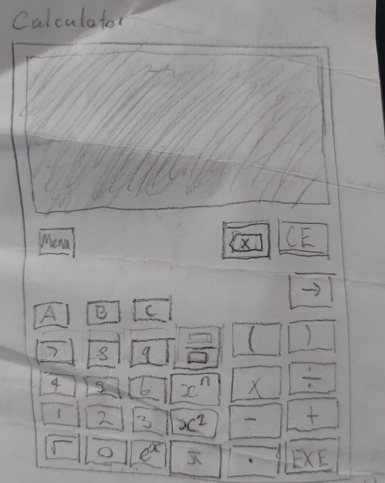 Calculator
Menu x CE
→
A B C
7 8 9 ( )
4 5 6 xⁿ × ÷
1 2 3 x² - +
√ 0 eˣ π . EXE